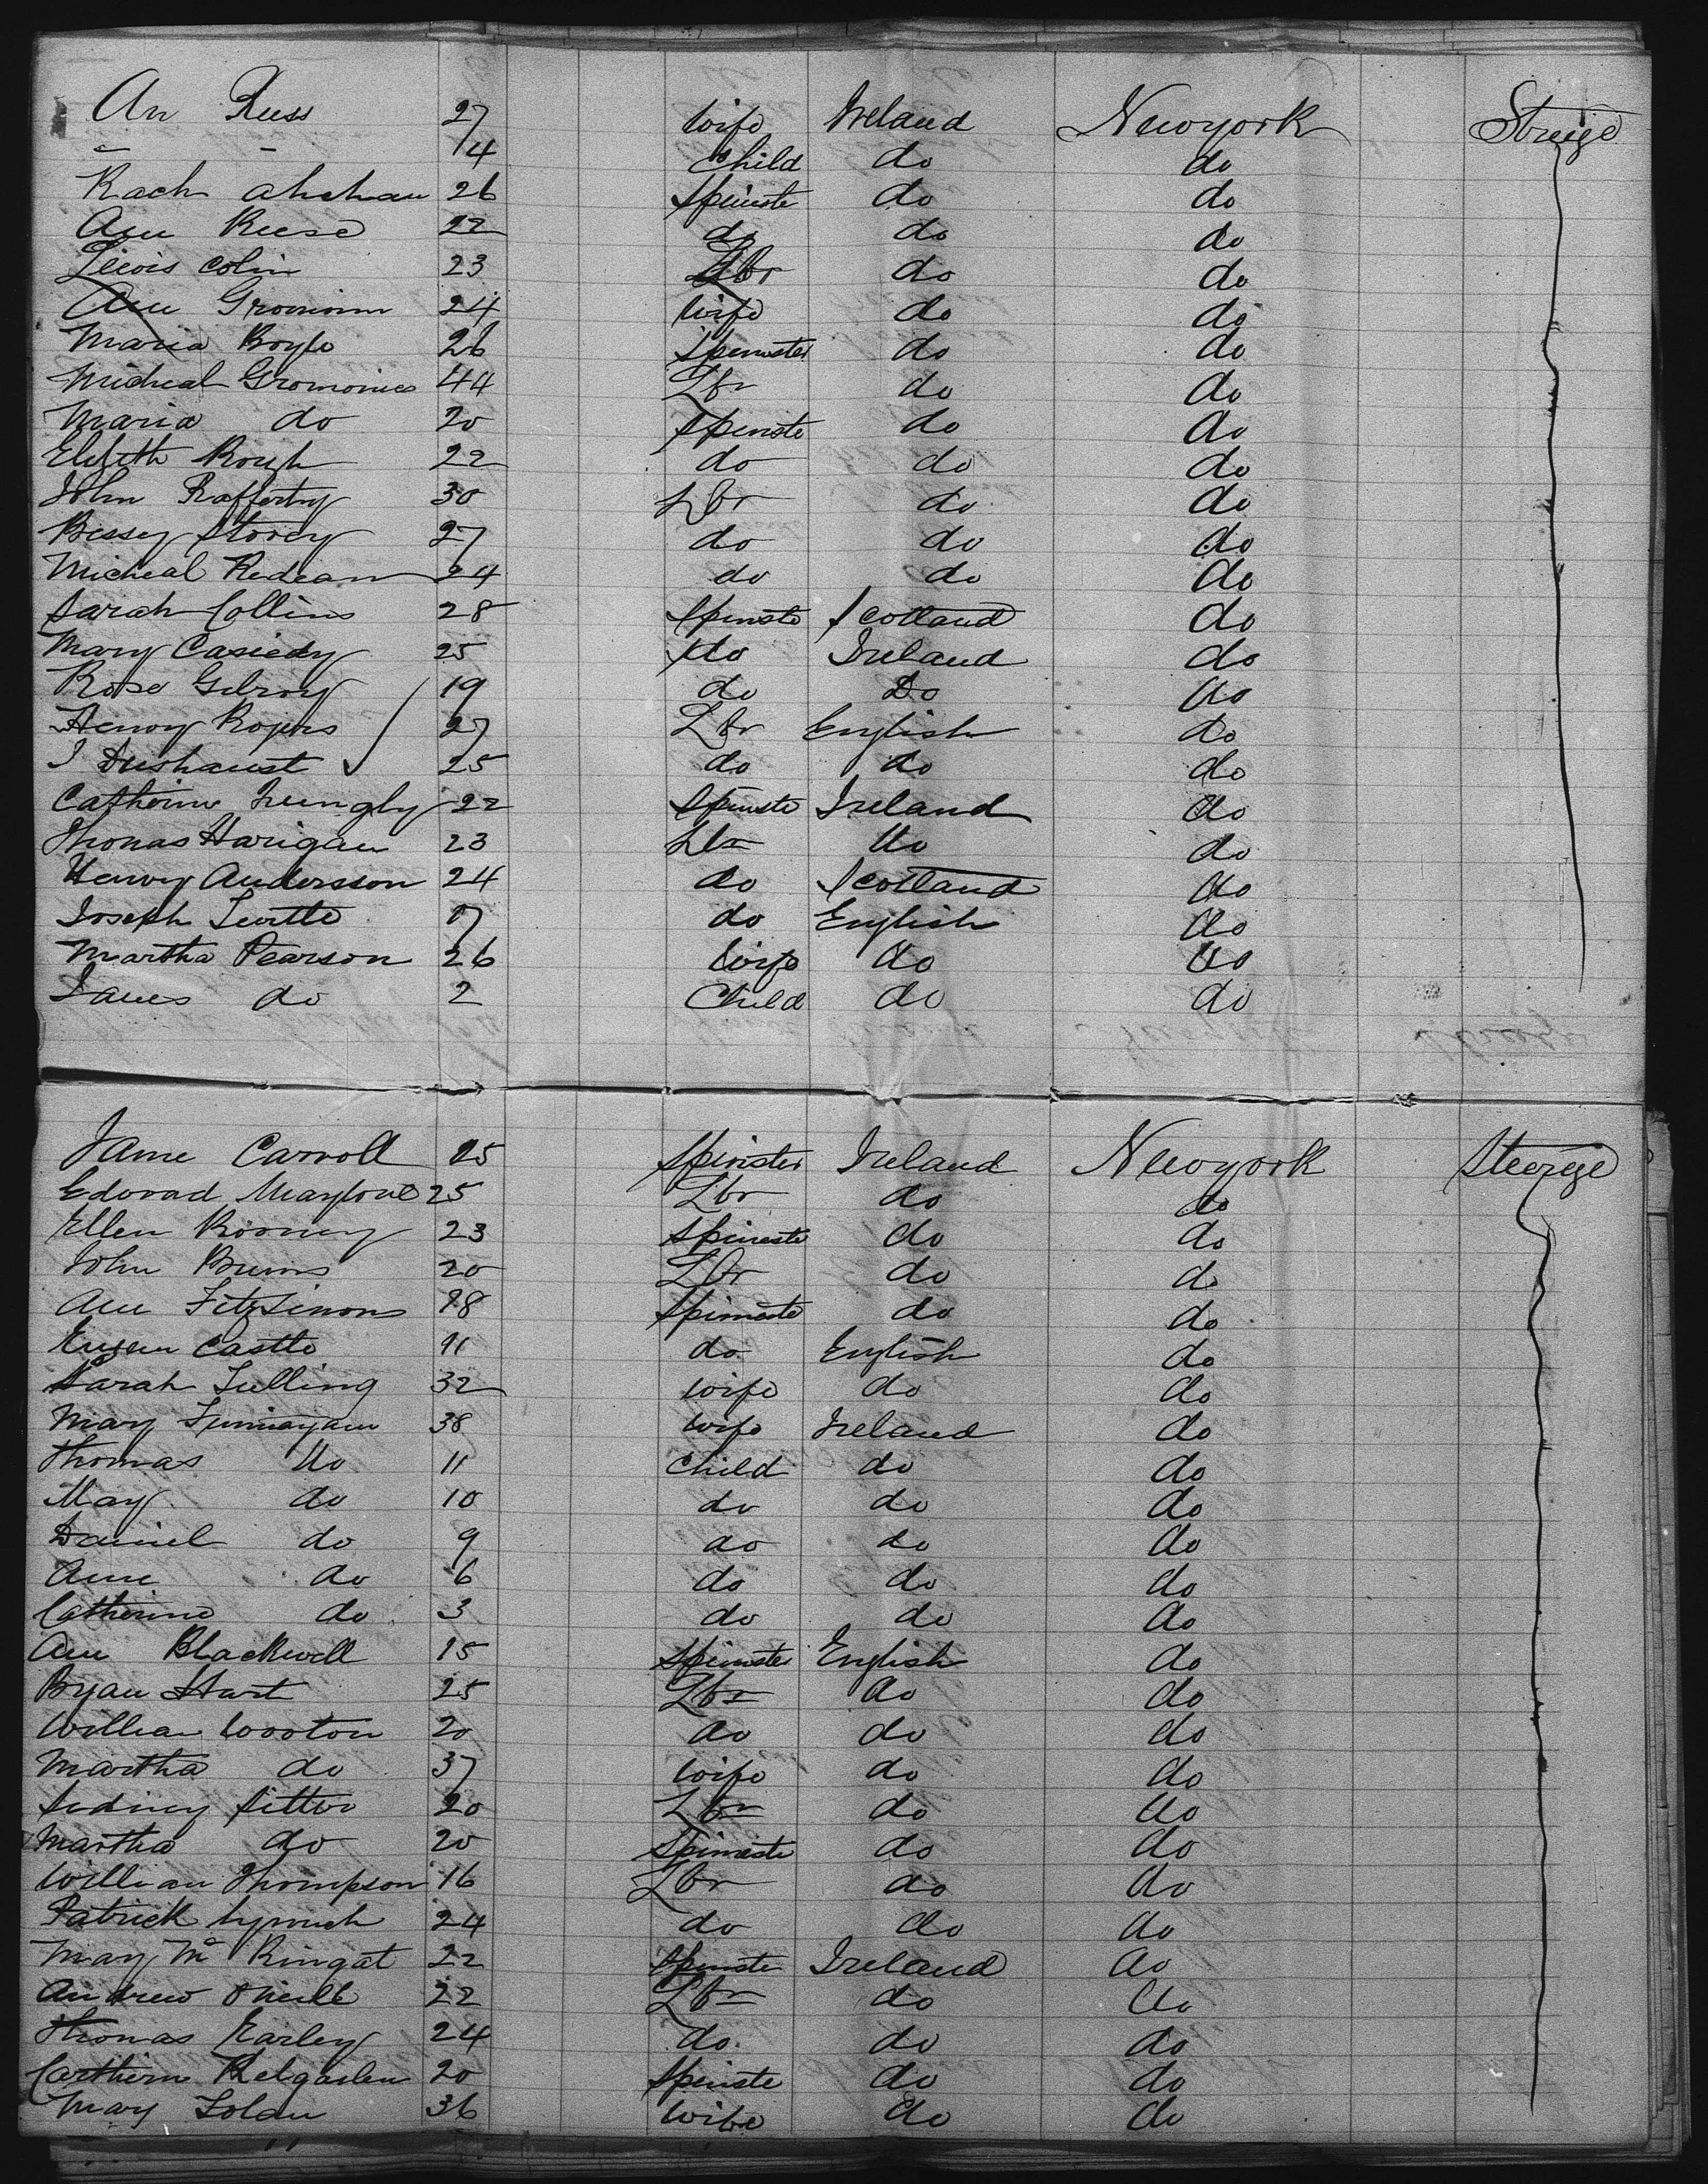 An Russ 27 wife Ireland Newyork Streige
" " 4 Child do do
Rach 26 Spinste do do
Ann Reese 22 do do do
Lewis Colin 23 Lbr do do
Ann 24 wife do do
Maria Boyle 26 Spinster do do
Micheal 44 Lbr do do
Maria do 20 Spinste do do
Elisbeth Rough 22 do do do
John Rafferty 30 Lbr do do
Bessey Storey 27 do do do
Micheal Redean 24 do do do
Sarah Collins 28 Spinste Scotland do
Mary Casiedy 25 do Ireland do
Rose Gilroy 19 do Do do
Henry Rogers 27 Lbr English do
J 25 do do do
Catherine 22 Spinste Ireland do
Thomas Harigan 23 Lbr do do
Henry Andersson 24 do Scotland do
Joseph 17 do English do
Martha Pearson 26 wife do do
James do 2 Child do do
Jame Carroll 25 Spinster Ireland Newyork Steerge
Edward 25 Lbr do do
Ellen Rooney 23 Spineste do do
John Burns 20 Lbr do do
Ann Fitzsimons 18 Spinneste do do
Castle 91 do English do
Sarah Tulling 32 wife do do
Mary 38 wife Ireland do
Thomas do 11 Child do do
May do 10 do do do
Daniel do 9 do do do
Anne do 6 do do do
Catherine do 3 do do do
Ann Blackwell 15 Spinster English do
Bryan Hart 25 Lbr do do
William Wooton 20 do do do
Martha do 37 wife do do
Sidney Sitter 20 Lbr do do
Martha do 20 Spinneste do do
William Thompson 16 Lbr do do
Patrick Lynnch 24 do do do
Mary Mc Ringat 22 Spinste Ireland do
Andrew ONeill 22 Lbr do do
Thomas Earley 24 do do do
20 Spinste do do
Mary Tolan 36 wife do do